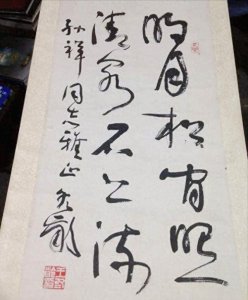 明月松间照
清泉石上流
孙祥同志雅正